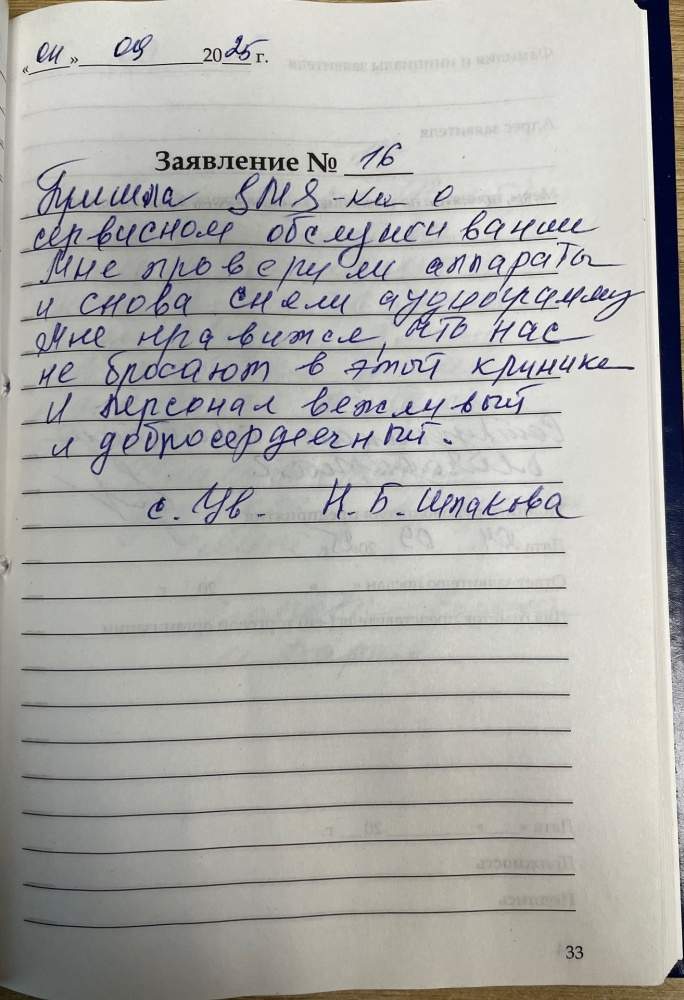 «04» 09 2025 г.
Заявление № 16
Пришла SMS-ка о
сервисном обслуживании
Мне проверили аппараты
и снова сняли аудиограмму
Мне нравится, что нас
не бросают в этой клинике
И персонал вежливый
и добросердечный.
с. Ув. Н. Б. Шпакова
33